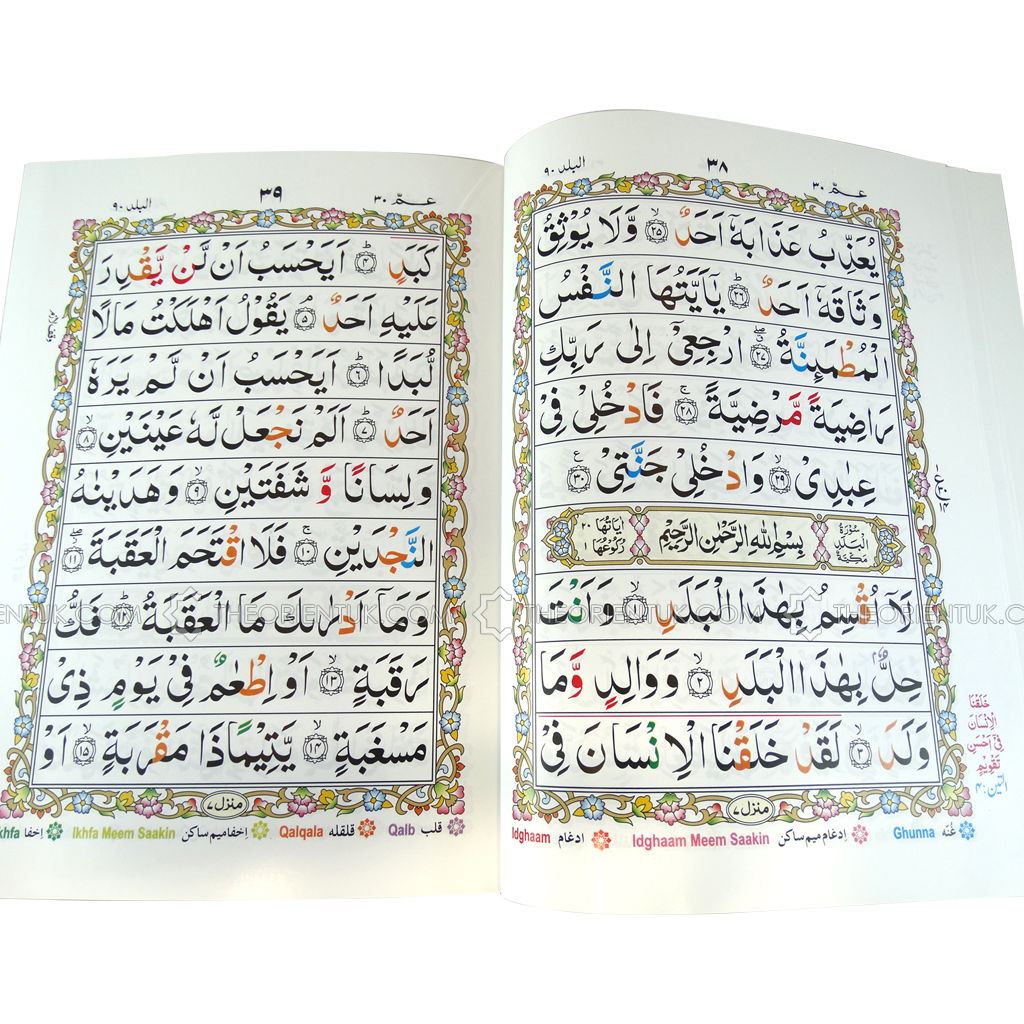 عمّ ٣٠
٣٨
البلد ٩٠
يُعَذِّبُ عَذَابَهٗۤ اَحَدٌ ۙ‏﴿۲۵﴾ وَّلَا يُوْثِقُ
وَثَاقَهٗۤ اَحَدٌ ؕ‏﴿۲۶﴾ يٰۤاَيَّتُهَا النَّفْسُ
الْمُطْمَئِنَّةُ ۖ‏﴿۲۷﴾ ارْجِعِىْۤ اِلٰى رَبِّكِ
رَاضِيَةً مَّرْضِيَّةً ۚ‏﴿۲۸﴾ فَادْخُلِىْ فِىْ
عِبٰدِىْ ۙ‏﴿۲۹﴾ وَادْخُلِىْ جَنَّتِىْ ﴿۳۰﴾ ع
سُوْرَةُ الْبَلَدِ مَكِّيَّةٌ
بِسْمِ اللهِ الرَّحْمٰنِ الرَّحِيْمِ
اٰيَاتُهَا ٢٠ رُكُوْعُهَا ١
لَاۤ اُقْسِمُ بِهٰذَا الْبَلَدِ ۙ‏﴿۱﴾ وَاَنْتَ
حِلٌّ ۢ بِهٰذَا الْبَلَدِ ۙ‏﴿۲﴾ وَوَالِدٍ وَّمَا
وَلَدَ ۙ‏﴿۳﴾ لَقَدْ خَلَقْنَا الْاِنْسَانَ فِىْ
خَلَقْنَا
الْاِنْسَانَ
فِىْۤ اَحْسَنِ
تَقْوِيْمٍ
التين: ۴
منزل ٧
Ghunna غُنّه
Idghaam Meem Saakin اِدغام ميم ساکن
Idghaam ادغام
عمّ ٣٠
٣٩
البلد ٩٠
كَبَدٍ ؕ‏﴿۴﴾ اَيَحْسَبُ اَنْ لَّنْ يَّقْدِرَ
عَلَيْهِ اَحَدٌ ۘ‏﴿۵﴾ يَقُوْلُ اَهْلَكْتُ مَالًا
لُّبَدًا ؕ‏﴿۶﴾ اَيَحْسَبُ اَنْ لَّمْ يَرَهٗۤ
اَحَدٌ ؕ‏﴿۷﴾ اَلَمْ نَجْعَلْ لَّهٗ عَيْنَيْنِ ۙ‏﴿۸﴾
وَلِسَانًا وَّ شَفَتَيْنِ ۙ‏﴿۹﴾ وَهَدَيْنٰهُ
النَّجْدَيْنِ ۚ‏﴿۱۰﴾ فَلَا اقْتَحَمَ الْعَقَبَةَ ۖ‏﴿۱۱﴾
وَمَاۤ اَدْرٰٮكَ مَا الْعَقَبَةُ ؕ‏﴿۱۲﴾ فَكُّ
رَقَبَةٍ ۙ‏﴿۱۳﴾ اَوْ اِطْعٰمٌ فِىْ يَوْمٍ ذِىْ
مَسْغَبَةٍ ۙ‏﴿۱۴﴾ يَّتِيْمًا ذَا مَقْرَبَةٍ ۙ‏﴿۱۵﴾ اَوْ
منزل ٧
Qalb قلب
Qalqala قلقله
Ikhfa Meem Saakin اِخفا ميم ساکن
khfa اِخفا
THEORIENTUK.COM
THEORIENTUK.COM